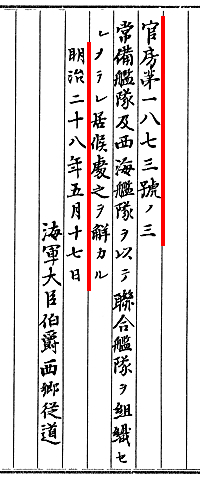 官房第一八七三號ノ三
常備艦隊及西海艦隊ヲ以テ聯合艦隊ヲ組織セ
シメラレ居候處之ヲ解カル
明治二十八年五月十七日
海軍大臣伯爵西郷従道